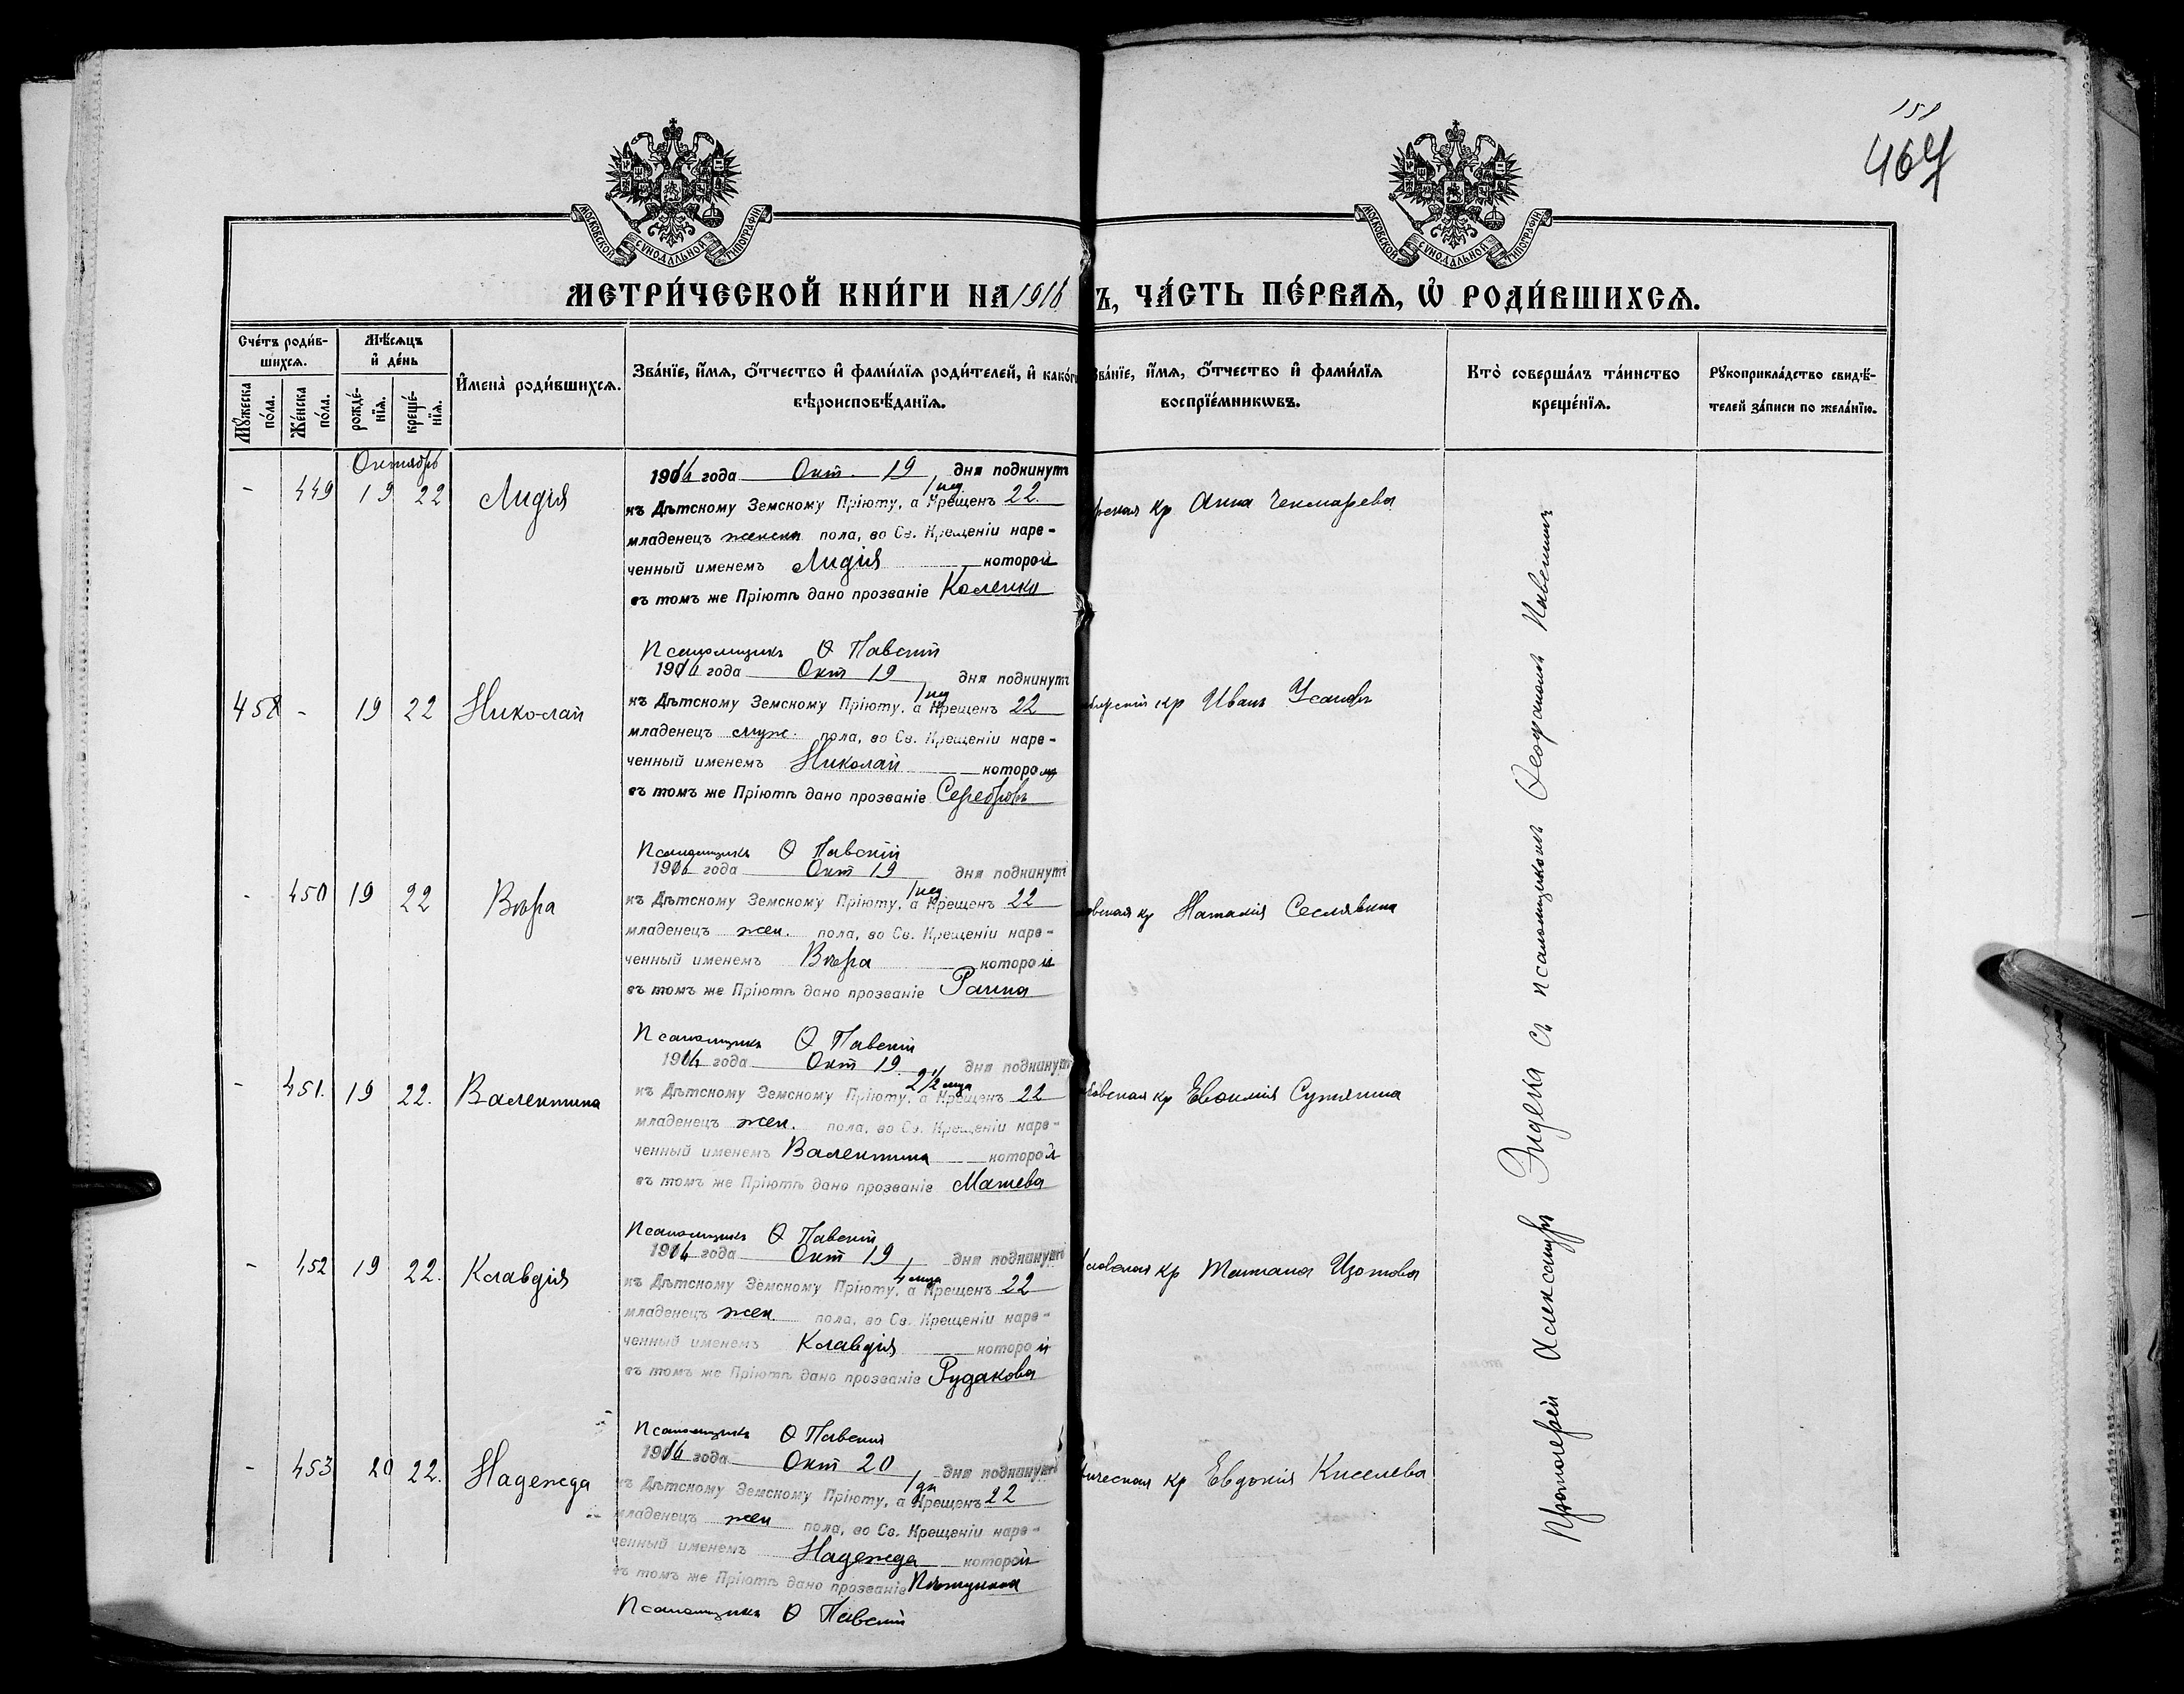 151
464
МОСКОВСКОЙ СѴНОДАЛЬНОЙ ТИПОГРАФІИ
МОСКОВСКОЙ СѴНОДАЛЬНОЙ ТИПОГРАФІИ
МЕТРИ́ЧЕСКОЙ КНИ́ГИ НА 1916
Ъ, ЧА́СТЬ ПЕ́РВАЯ, Ѡ҆ РОДИ́ВШИХСЯ.
Сче́тъ роди́в-
шихся.
Мꙋ́жеска по́ла.
Же́нска по́ла.
Мѣ́сяцъ
и҆ де́нь
рожде́-
нїя.
креще́-
нїя.
И҆мена̀ роди́вшихся.
Зва́нїе, и҆́мя, ѻ҆́тчество и҆ фами́лїя роди́телей, и҆ како́гѡ
вѣроисповѣ́данїя.
Зва́нїе, и҆́мя, ѻ҆́тчество и҆ фами́лїя
воспрїе́мникѡвъ.
Кто̀ соверша́лъ та́инство
креще́нїя.
Рꙋкоприкла́дство свидѣ́-
телей за́писи по жела́нїю.
Октябрь
- 449 19 22 Лидія
1916 года Окт. 19 дня подкинутъ
1 нед
къ Дѣтскому Земскому Пріюту, а Крещенъ 22.
младенецъ женска пола, во Св. Крещеніи наре-
ченный именемъ Лидія которой
въ томъ же Пріютѣ дано прозваніе Коленко
Псаломщикъ Ѳ Павскій
рская кр Анна Чекмарева
458 - 19 22 Николай
1916 года Окт 19 дня подкинутъ
1 нед
къ Дѣтскому Земскому Пріюту, а Крещенъ 22
младенецъ муж. пола, во Св. Крещеніи наре-
ченный именемъ Николай котором
въ томъ же Пріютѣ дано прозваніе Серебровъ
Псаломщикъ Ѳ Павскій
кр Иванъ Усановъ
- 450 19 22 Вѣра
1916 года Окт 19 дня подкинутъ
1 нед
къ Дѣтскому Земскому Пріюту, а Крещенъ 22
младенецъ жен. пола, во Св. Крещеніи наре-
ченный именемъ Вѣра которой
въ томъ же Пріютѣ дано прозваніе Раина
Псаломщикъ Ѳ Павскій
овская кр Наталія Сеслявина
- 451. 19 22. Валентина
1916 года Окт 19. дня подкинутъ
2 1/2 мца
къ Дѣтскому Земскому Пріюту, а Крещенъ 22
младенецъ жен. пола, во Св. Крещеніи наре-
ченный именемъ Валентина которой
въ томъ же Пріютѣ дано прозваніе Матева
Псаломщикъ Ѳ Павскій
овская кр Евѳимія
- 452 19 22. Клавдія
1916 года Окт 19 дня подкинутъ
4 мца
къ Дѣтскому Земскому Пріюту, а Крещенъ 22
младенецъ жен. пола, во Св. Крещеніи наре-
ченный именемъ Клавдія которой
въ томъ же Пріютѣ дано прозваніе Рудакова
Псаломщикъ Ѳ Павскій
ловская кр Татіана Изотова
- 453 20 22. Надежда
1916 года Окт 20 дня подкинутъ
1 дн
къ Дѣтскому Земскому Пріюту, а Крещенъ 22
младенецъ жен пола, во Св. Крещеніи наре-
ченный именемъ Надежда которой
въ томъ же Пріютѣ дано прозваніе
Псаломщикъ Ѳ Павскій
ическая кр Евдокія Киселева
Протоіерей Александръ съ псаломщикомъ Ѳеофаномъ Павскимъ